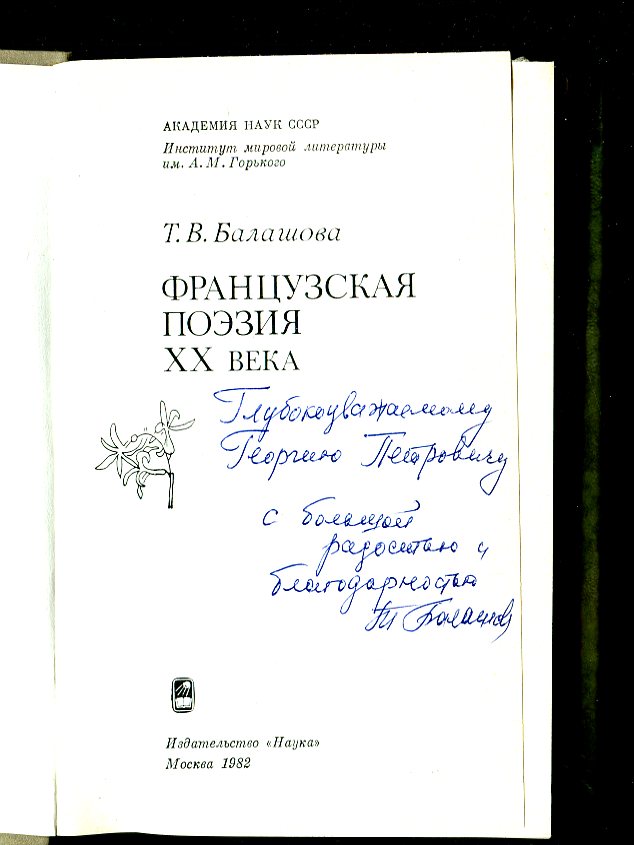 АКАДЕМИЯ НАУК СССР
Институт мировой литературы
им. А. М. Горького
Т. В. Балашова
ФРАНЦУЗСКАЯ
ПОЭЗИЯ
XX ВЕКА
Глубокоуважаемому
Георгию Петровичу
с большой
радостью и
благодарностью
Т Балашов
Издательство «Наука»
Москва 1982